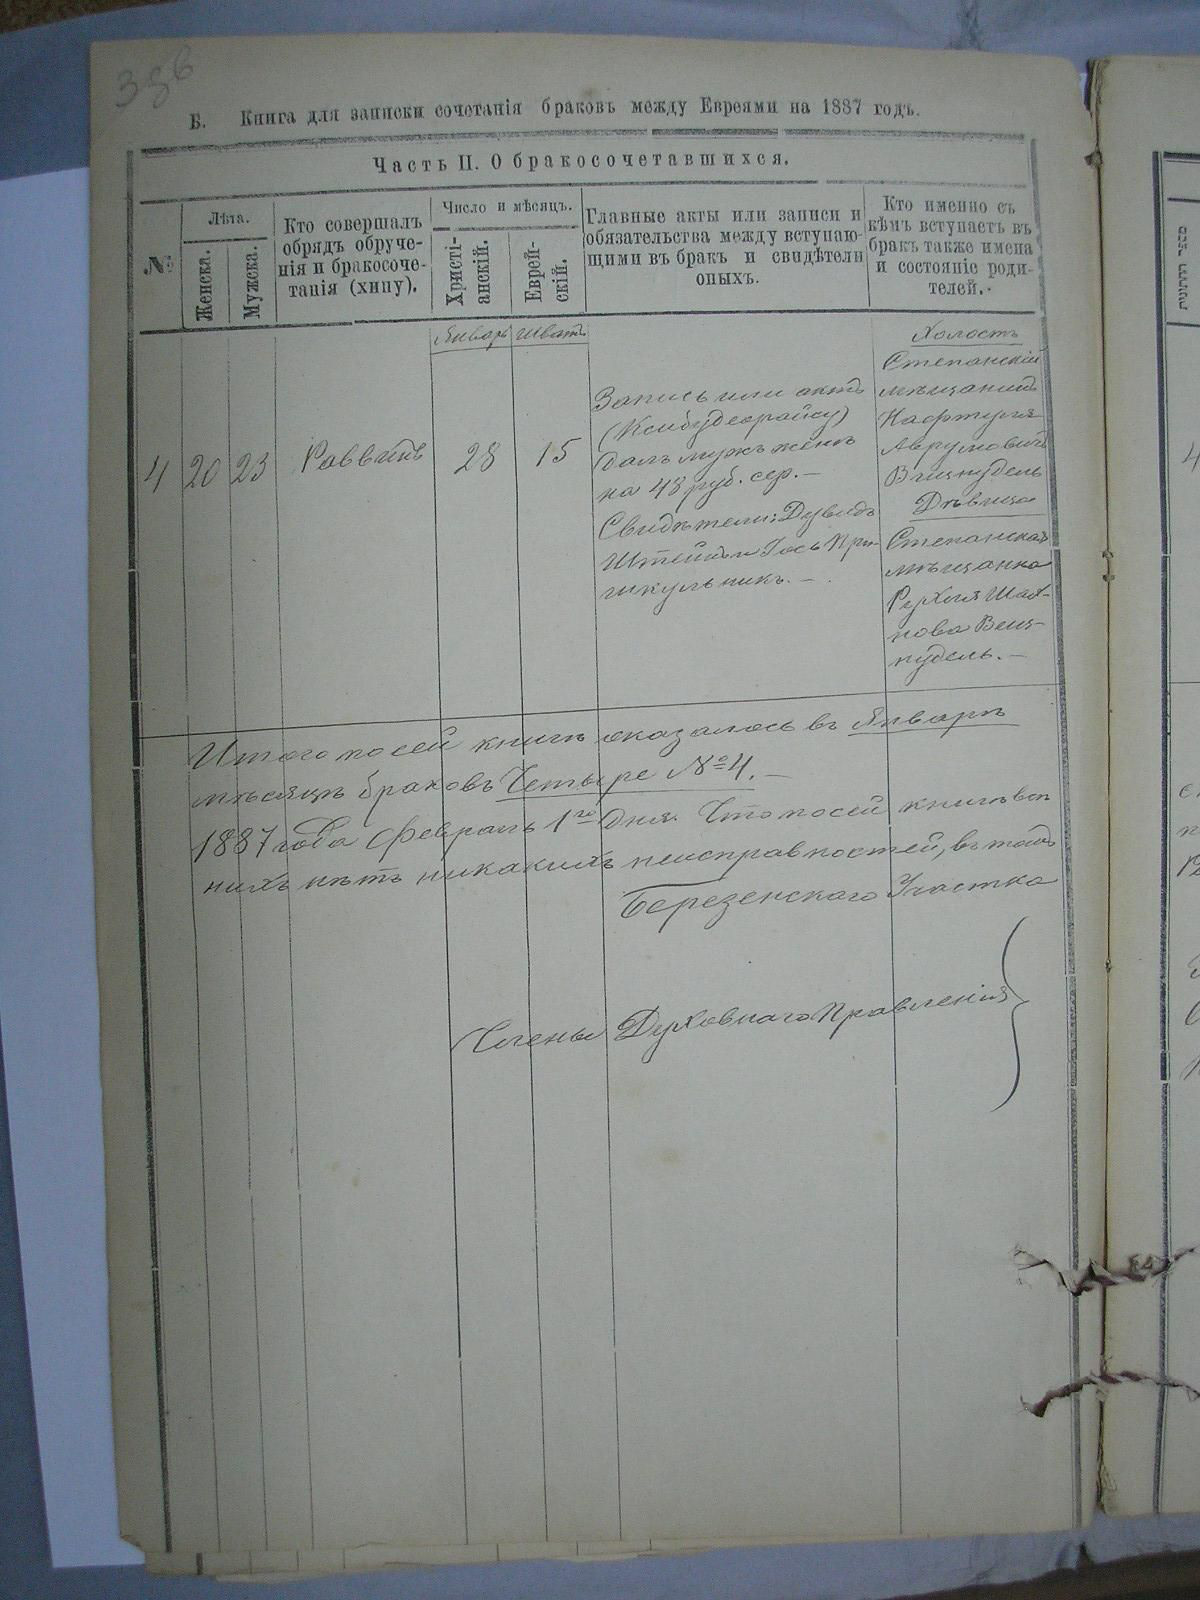 Б. Книга для записки сочетанія браковъ между Евреями на 1887 годъ.
Часть II. О бракосочетавшихся.
№
Лѣта.
Женска.
Мужска.
Кто совершалъ
обрядъ обруче-
нія и бракосоче-
танія (хипу).
Число и мѣсяцъ.
Христі-
анскій.
Еврей-
скій.
Главные акты или записи и
обязательства между вступаю-
щими въ бракъ и свидѣтели
оныхъ.
Кто именно съ
кѣмъ вступаетъ въ
бракъ также имена
и состояніе роди-
телей.
Январь
Шватъ
4
20
23
Раввинъ
28
15
Запись или актъ
(Ксибудеорайсу)
далъ мужъ женѣ
на 48 руб. сер. —
Свидѣтели: Дувидъ
Штейнъ и Іось При-
шкульникъ. —
Холостъ
Степанскій
мѣщанинъ
Нафтула
Аврумовичъ
Вайнудель
Дѣвица
Степанская
мѣщанка
Рухля Шая-
нова Вай-
нудель. —
Итого по сей книгѣ оказалось въ Январѣ
мѣсяцѣ браковъ Четыре № 4. —
1887 года Февраль 1го дня. Что по сей книгѣ
нихъ нѣтъ никакихъ неисправностей, въ томъ
Березенскаго Участка
Члены Духовнаго Правленія